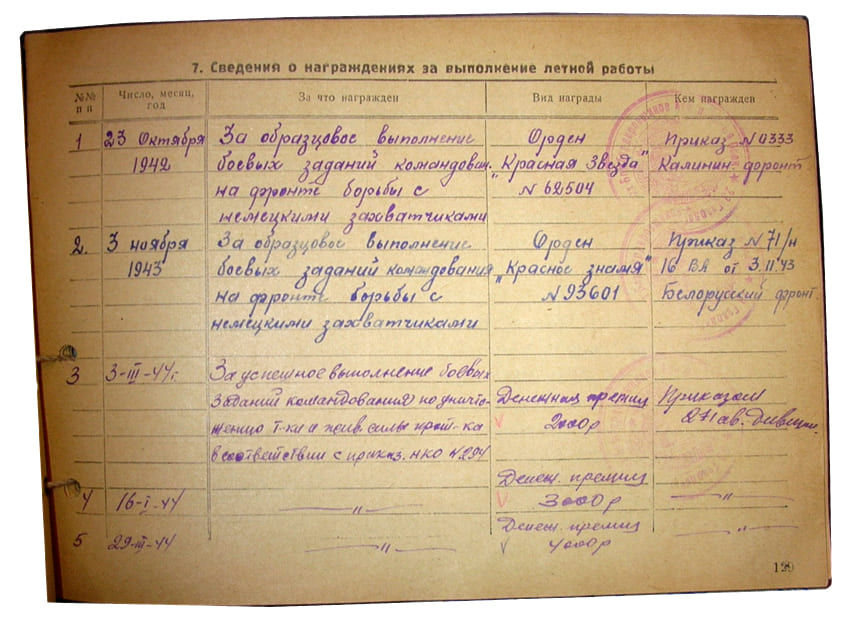 7. Сведения о награждениях за выполнение летной работы
№№ п п
Число, месяц, год
За что награжден
Вид награды
Кем награжден
1
23 Октября 1942
За образцовое выполнение
боевых заданий командован.
на фронте борьбы с
немецкими захватчиками
Орден
"Красная Звезда"
N 62504
Приказ N 0333
Калинин. фронт
2.
3 ноября 1943
За образцовое выполнение
боевых заданий командования
на фронте борьбы с
немецкими захватчиками
Орден
"Красное знамя"
N 93601
Приказ N 71/н
16 ВА от 3.11.43
Белорусский фронт.
3
3-III-44г.
За успешное выполнение боевых
заданий командования по уничто-
жению т-ки и жив. силы прот-ка
в соответствии с приказ. НКО N 294
Денежная премия
2000р
Приказом
271 ав. дивизии.
4
16-I-44
-"-
Денеж. премия
3000р
-"-
5
29-III-44
-"-
Денеж. премия
4000р
-"-
129